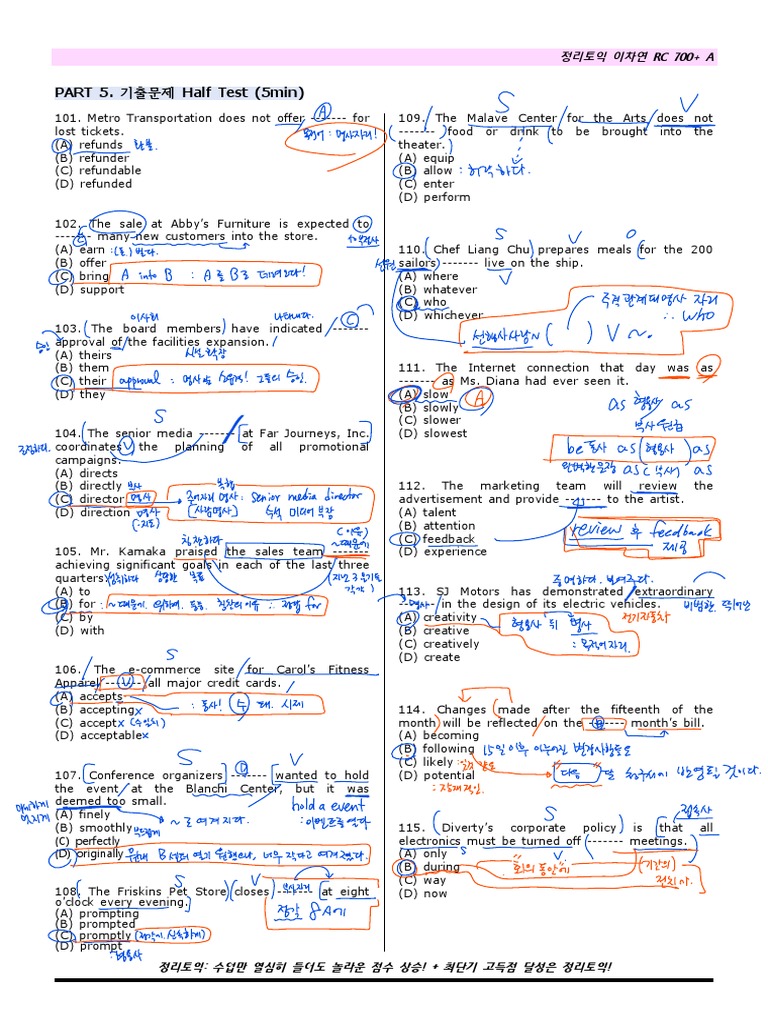 정리토익 이차연 RC 700+ A
PART 5. 기출문제 Half Test (5min)
101. Metro Transportation does not offer ------- for
lost tickets.
(A) refunds 환불
(B) refunder
(C) refundable
(D) refunded
A
목적어 : 명사자리!
102. The sale at Abby's Furniture is expected to
------- many new customers into the store.
(A) earn : (돈) 벌다.
(B) offer
(C) bring A into B : A를 B로 데려오다!
(D) support
to부정사
이사회 나타내다.
103. The board members have indicated -------
approval of the facilities expansion.
승인 시설확장
(A) theirs
(B) them
(C) their approval : 명사
(D) they
S
104. The senior media ------- at Far Journeys, Inc.
coordinates V the planning of all promotional
campaigns.
(A) directs
(B) directly 부사
(C) director 명사
(D) direction 명사
senior media director
[사람명사] 수석 미디어 부장
칭찬하다
105. Mr. Kamaka praised the sales team -------
achieving significant goals in each of the last three
quarters.
(A) to
(B) for
(C) by
(D) with
S
106. The e-commerce site for Carol's Fitness
Apparel ------- all major credit cards.
V
(A) accepts : 동사! 수, 태, 시제
(B) accepting x
(C) accept x (수일치)
(D) acceptable x
S V
107. Conference organizers ------- wanted to hold
the event at the Blanchi Center, but it was
deemed too small.
D
hold a event
: 이벤트를 열다
(A) finely
(B) smoothly 부드럽게
(C) perfectly
(D) originally
~로 여겨지다.
108. The Friskins Pet Store closes ------- at eight
o'clock every evening.
(A) prompting
(B) prompted
(C) promptly
(D) prompt
: 형용사
정각 8시에
S V
109. The Malave Center for the Arts does not
------- food or drink to be brought into the
theater.
(A) equip
(B) allow : 허락하다.
(C) enter
(D) perform
S V O
110. Chef Liang Chu prepares meals for the 200
sailors ------- live on the ship.
선원 V
(A) where
(B) whatever
(C) who
(D) whichever
주격관계대명사 자리
∴ who
( ) V ~.
111. The Internet connection that day was as
------- as Ms. Diana had ever seen it.
(A) slow A
(B) slowly
(C) slower
(D) slowest
as 형용사 as
be동사 as (형용사) as
완벽한문장 as (부사) as
112. The marketing team will review the
advertisement and provide ------- to the artist.
(A) talent
(B) attention
(C) feedback
(D) experience
review 후 feedback
제공
113. SJ Motors has demonstrated extraordinary
------- in the design of its electric vehicles.
명사
전기자동차
(A) creativity
(B) creative
(C) creatively
(D) create
형용사 뒤 명사
: 목적어자리.
114. Changes made after the fifteenth of the
month will be reflected on the ------- month's bill.
(A) becoming
(B) following
(C) likely
(D) potential
: 잠재적인
다음 달 청구서에 반영될 것이다.
S 접속사
115. Diverty's corporate policy is that all
electronics must be turned off ------- meetings.
S V
(A) only
(B) during
(C) way
(D) now
"회의 동안에"
(기간의)
전치사.
정리토익: 수업만 열심히 들어도 놀라운 점수 상승! + 최단기 고득점 달성은 정리토익!